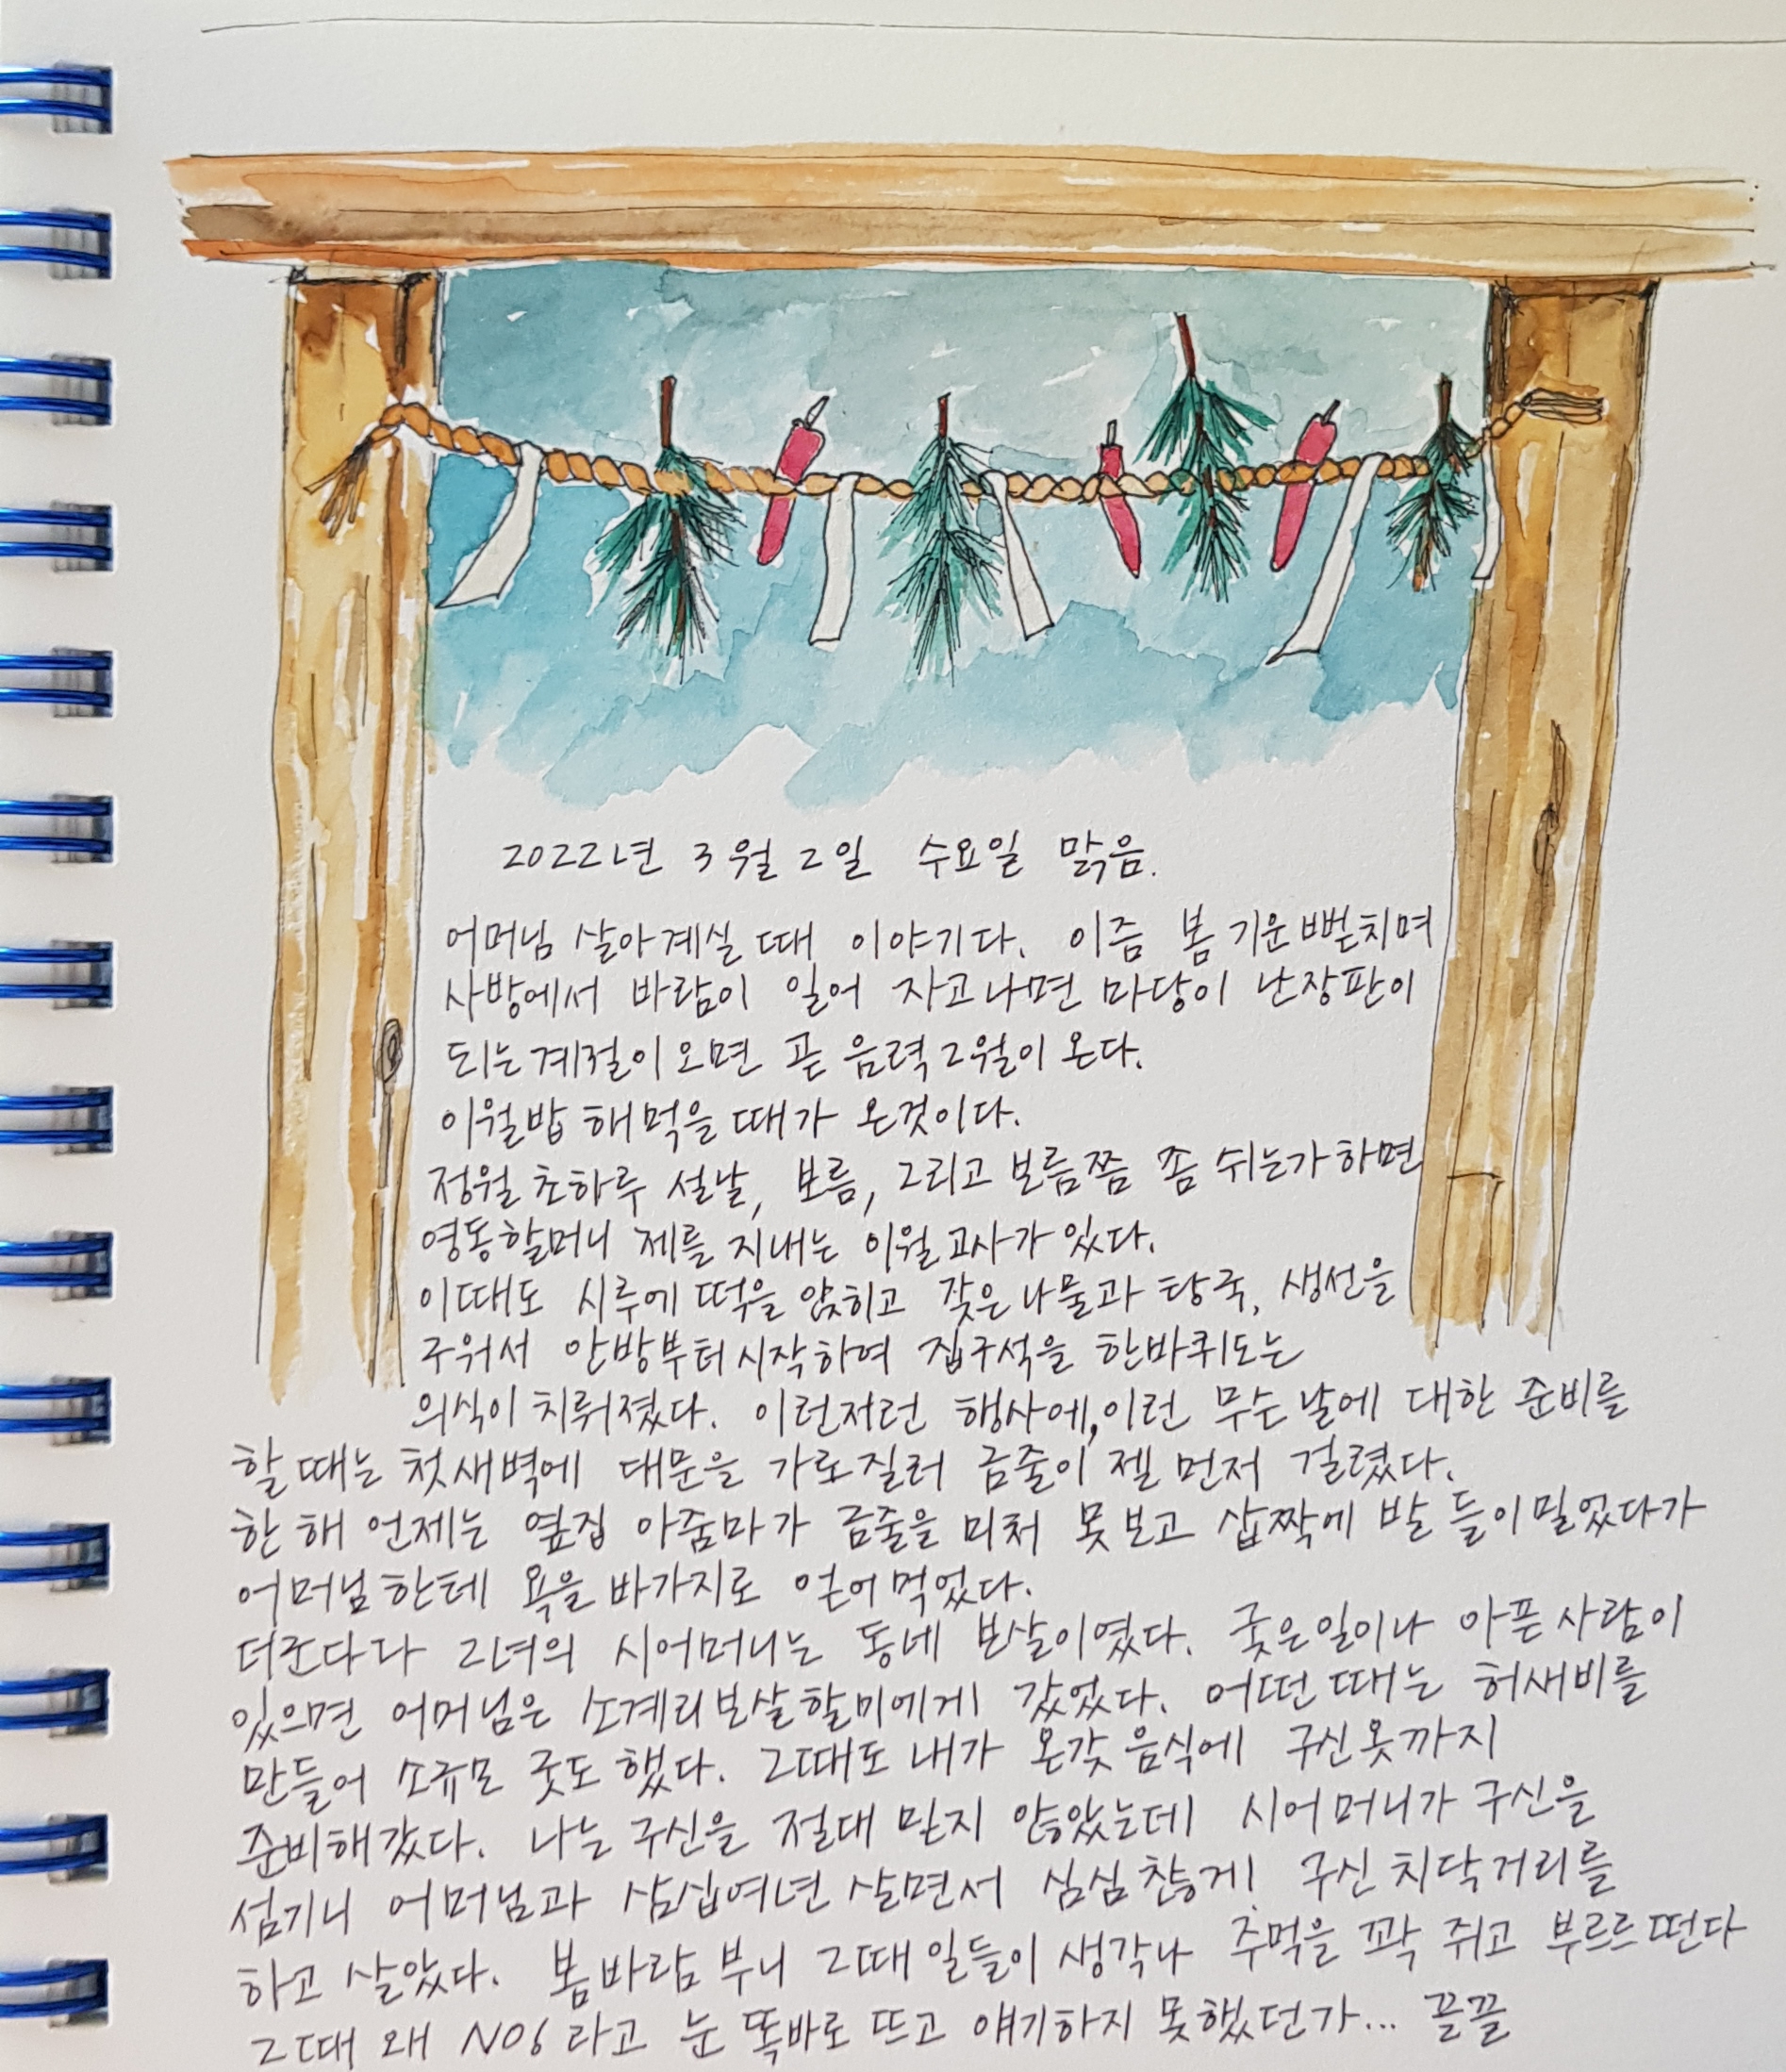 2022년 3월 2일 수요일 맑음.
어머님 살아계실 때 이야기다. 이즘 봄 기운 뻗치며
사방에서 바람이 일어 자고나면 마당이 난장판이
되는계절이오면 곧 음력2월이 온다.
이월밥 해먹을 때가 온것이다.
정월 초하루 설날, 보름, 그리고 보름쯤 좀 쉬는가하면
영동할머니 제를 지내는 이월 고사가 있다.
이때도 시루에 떡을 앉히고 갖은나물과 탕국, 생선을
구워서 안방부터시작하여 집구석을 한바퀴도는
의식이 치뤄졌다. 이런저런 행사에,이런 무슨날에 대한 준비를
할때는 첫새벽에 대문을 가로질러 금줄이 젤 먼저 걸렸다.
한 해 언제는 옆집 아줌마가 금줄을 미처 못보고 삽짝에 발 들이밀었다가
어머님한테 욕을바가지로 얻어먹었다.
더군다나 그녀의 시어머니는 동네 보살이였다. 궂은일이나 아픈사람이
있으면 어머님은 소계리보살할미에게 갔었다. 어떤때는 허새비를
만들어 소규모 굿도 했다. 그때도 내가 온갖음식에 구신옷까지
준비해갔다. 나는 구신을 절대 믿지 않았는데 시어머니가 구신을
섬기니 어머님과 삼십여년 살면서 심심찮게 구신치닥거리를
하고 살았다. 봄바람부니 그때일들이 생각나 주먹을 꽉 쥐고 부르르떤다
그때 왜 NO라고 눈 똑바로 뜨고 얘기하지 못했던가... 끌끌